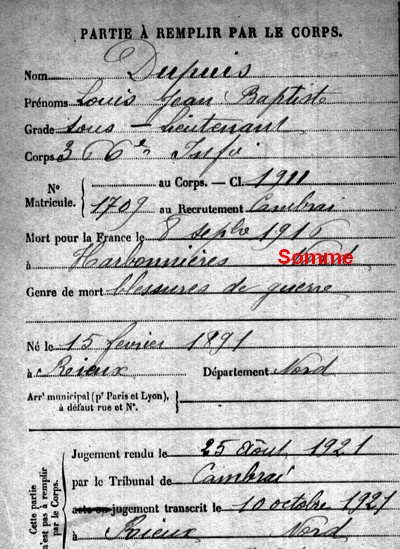 PARTIE À REMPLIR PAR LE CORPS.
Nom Dupuis
Prénoms Louis Jean Baptiste
Grade Sous-Lieutenant
Corps 3 6e Infie
No Matricule. { au Corps. — Cl. 1911
1709 au Recrutement Cambrai
Mort pour la France le 8 Sepbre 1916
à Harbonnières Somme
Genre de mort blessures de guerre
Né le 15 février 1891
à Rieux Département Nord
Arrt municipal (pr Paris et Lyon), }
à défaut rue et No.
Cette partie n'est pas à remplir par le Corps.
Jugement rendu le 25 Août 1921
par le Tribunal de Cambrai
acte ou jugement transcrit le 10 octobre 1921
à Rieux Nord